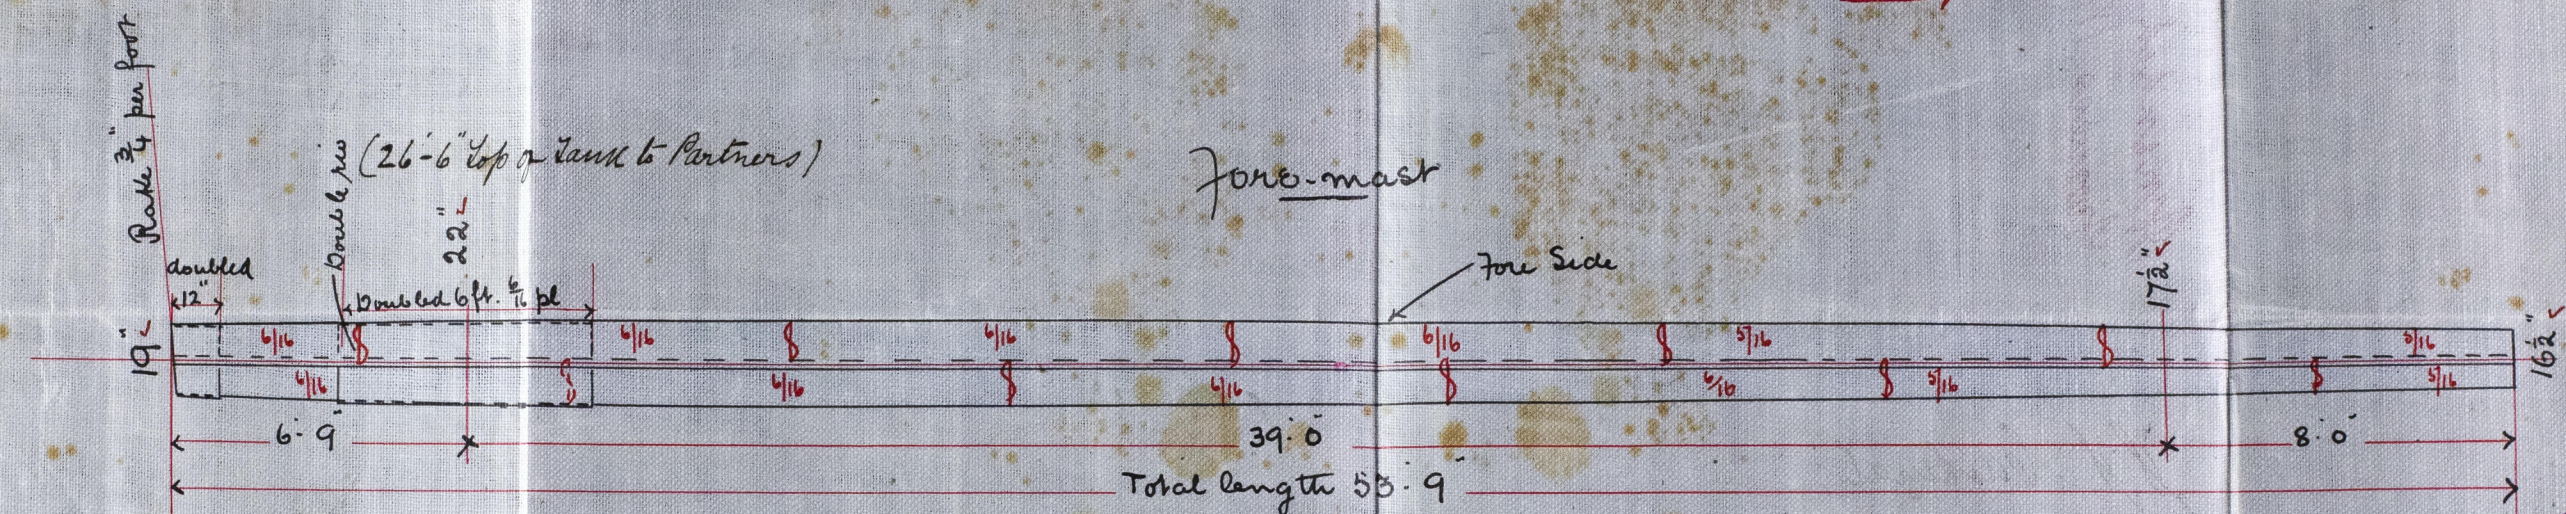 Rake 3/4" per foot
Double riv
(26'-6" Top of Tank to Partners)
Fore-mast
22"
17 1/2"
Fore Side
doubled
12"
Doubled 6 ft. 6/16 pl
19"
16 1/2"
6/16 6/16 6/16 6/16 5/16 5/16
6/16 6/16 6/16 6/16 5/16 5/16
6'-9" 39'-0" 8'-0"
Total length 53'-9"